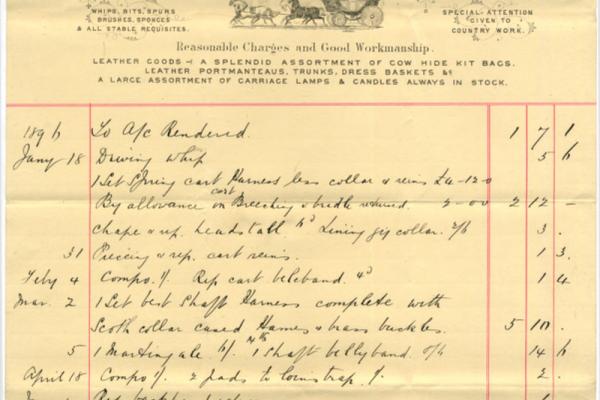 WHIPS, BITS, SPURS
BRUSHES, SPONGES
& ALL STABLE REQUISITES.
SPECIAL-ATTENTION
GIVEN TO
COUNTRY WORK.
Reasonable Charges and Good Workmanship.
LEATHER GOODS A SPLENDID ASSORTMENT OF COW HIDE KIT BAGS.
LEATHER PORTMANTEAUS, TRUNKS, DRESS BASKETS &c
A LARGE ASSORTMENT OF CARRIAGE LAMPS & CANDLES ALWAYS IN STOCK.
189 To A/c Rendered. 1 7 1
Jany 18 Driving whip 5 6
1 Set Spring cart Harness less collar & reins £4-12-0
By allowance on cart Breeching & bridle returned. 2-0-0 2 12 -
Chape & rep. headstall Lining gig collar. 2/6 3 .
31 Piecing & rep. cart reins. 1 3.
Feby 4 Compo 1/. Rep cart belcband. 4d 1 4
Mar. 2 1 Set best Shaft Harness complete with
Scotch collar cased Hames & brass buckles. 5 10 .
5 1 Martingale 1 Shaft bellyband. 14 6
April 18 Compo 1/. 2 pads to loinstrap 1/. 2 .